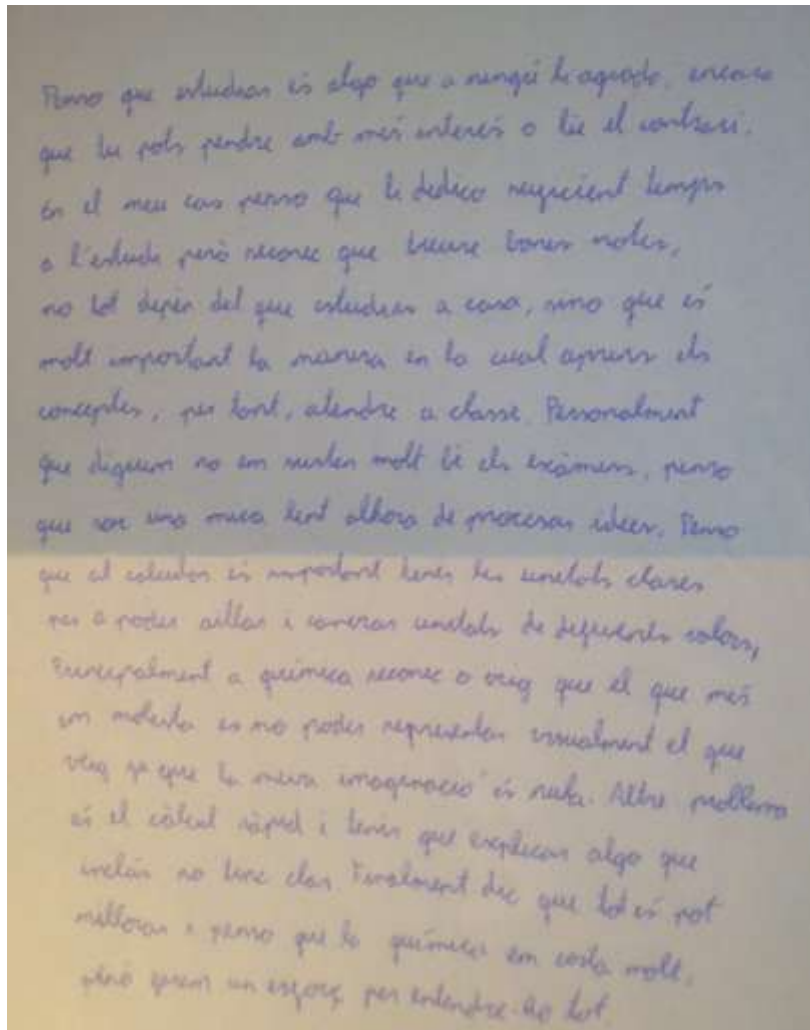 Penso que estudiar és algo que a ningú li agrada, encara
que tu pots pendre amb més interés o bé el contrari.
en el meu cas penso que li dedico suficient temps
a l'estudi però reconec que treure bones notes,
no tot depèn del que estudias a casa, sino que és
molt important la manera en la cual aprens els
conceptes, per tant, atendre a classe. Personalment
que diguem no em surten molt bé els exàmens, penso
que soc una mica lent alhora de procesar idees. Penso
que al estudiar és important tenir les unitats clares
per a poder aillar i unitats de diferents valors,
Principalment a química reconec o veig que el que més
em molesta es no poder representar visualment el que
veig ja que la meva imaginació és nula. Altre problema
és el càlcul ràpid i tenir que explicar algo que
inclús no tinc clar. Finalment dic que tot és pot
millorar i penso que la química em costa molt,
però fem un esforç per entendre-ho tot.